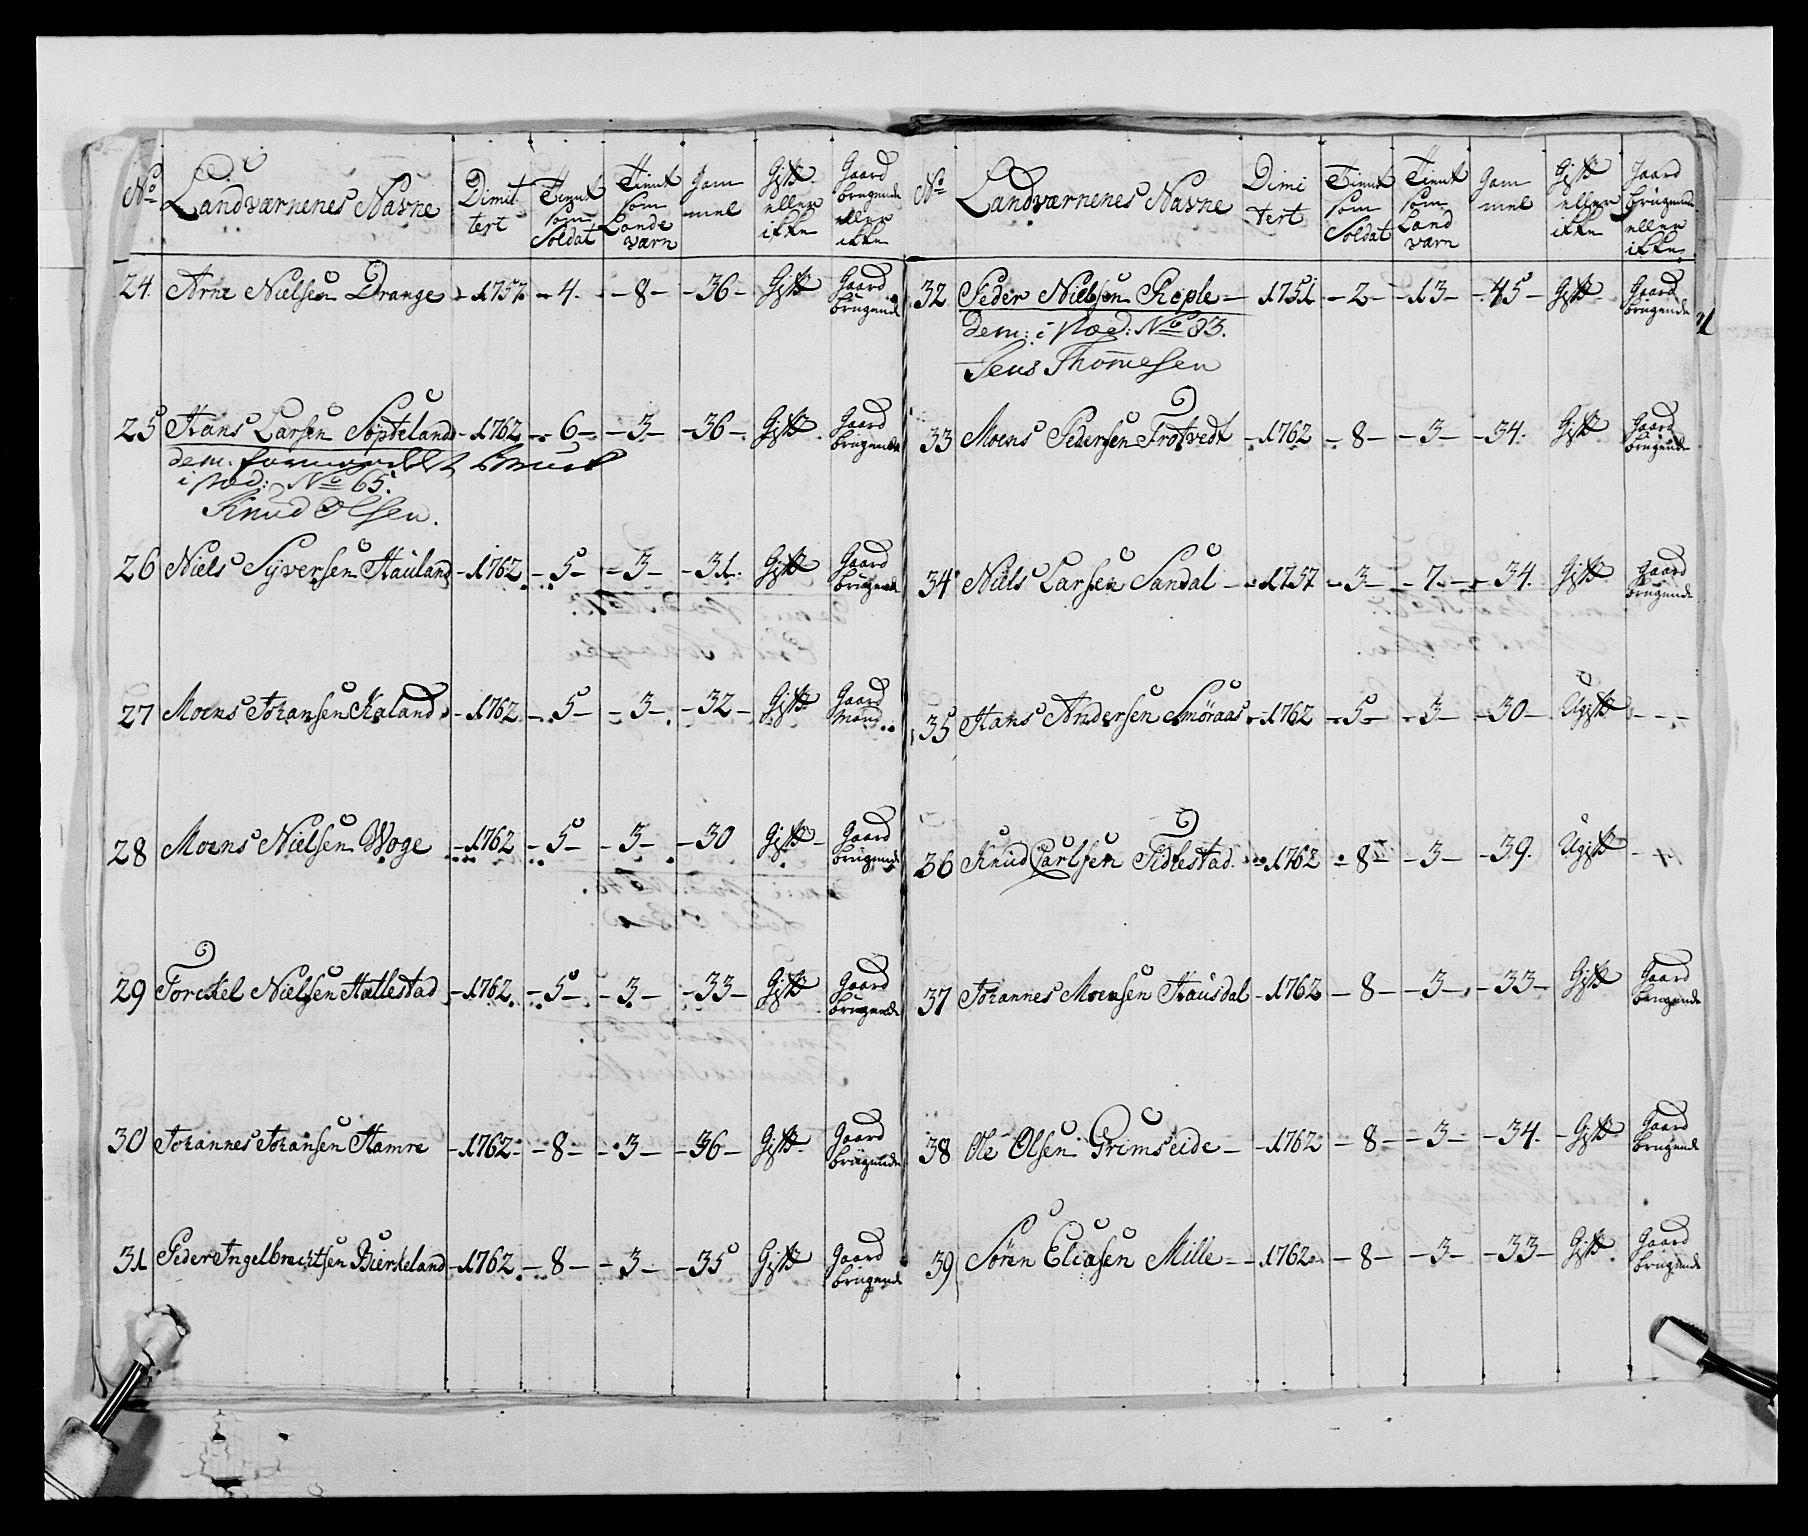 No Landværnenes Navne Dimit tert Tient som Soldat Tient som Lande værn Gam mel Gift eller ikke Gaard brugende eller ikke
24. Arne Nielsen Drange - 1757. - 4. - 8 - - 36 - Gift Gaard brugende
25 Hans Larsen Søpteland - 1762. - 6 - - 3 - - 36 - Gift Gaard brugende
dem.
i Nod: No 65.
Knud Olsen.
26 Niels Syversen Hauland - 1762. - 5 - - 3 - - 31. Gift Gaard brugende
27 Moens Johansen Kaland - 1762. - 5 - - 3 - - 32 - Gift Gaard Mand
28 Moens Nielsen Woge - 1762 - 5 - - 3 - - 30 Gift - Gaard brugende
29 Torckel Nielsen Hallestad - 1762. - 5 - - 3 - - 33 - Gift Gaard brugende
30 Johannes Johansen Hamre - 1762. - 8 - - 3 - - 36 - Gift Gaard brugende
31 Peder Ingelbrechtsen Bierkeland - 1762. - 8 - - 3 - - 35 Gift Gaard brugende
No Landværnenes Navne Dimi tert Tient som Soldat Tient som Land værn Gam mel Gift eller ikke Gaard brugende eller ikke
32 Peder Nielsen Røple - 1751 - 2 - - 13 - - 45 - Gift Gaard brugende
Dem: i Nod: No 83.
Thommesen
33 Moens Pedersen Trotvedt - 1762 - 8 - - 3 - - 34. Gift Gaard brugende
34 Niels Larsen Sandal - 1757 - 3 - - 7 - - 34. Gift Gaard brugende
35 Hans Andersen Smøraas - 1762 - 5 - - 3 - - 30 - Ugift - - -
36 Knud Carlsen Tidlestad - 1762 - 8 - - 3 - - 39. Ugift -
37 Johannes Moensen Hausdal - 1762 - 8 - - 3 - - 33 - Gift Gaard brugende
38 Ole Olsen Grimseide - 1762 - 8 - - 3 - - 34. - Gift Gaard brugende
39 Søren Eliasen Mille - 1762 - 8 - - 3 - - 33 - Gift Gaard brugende